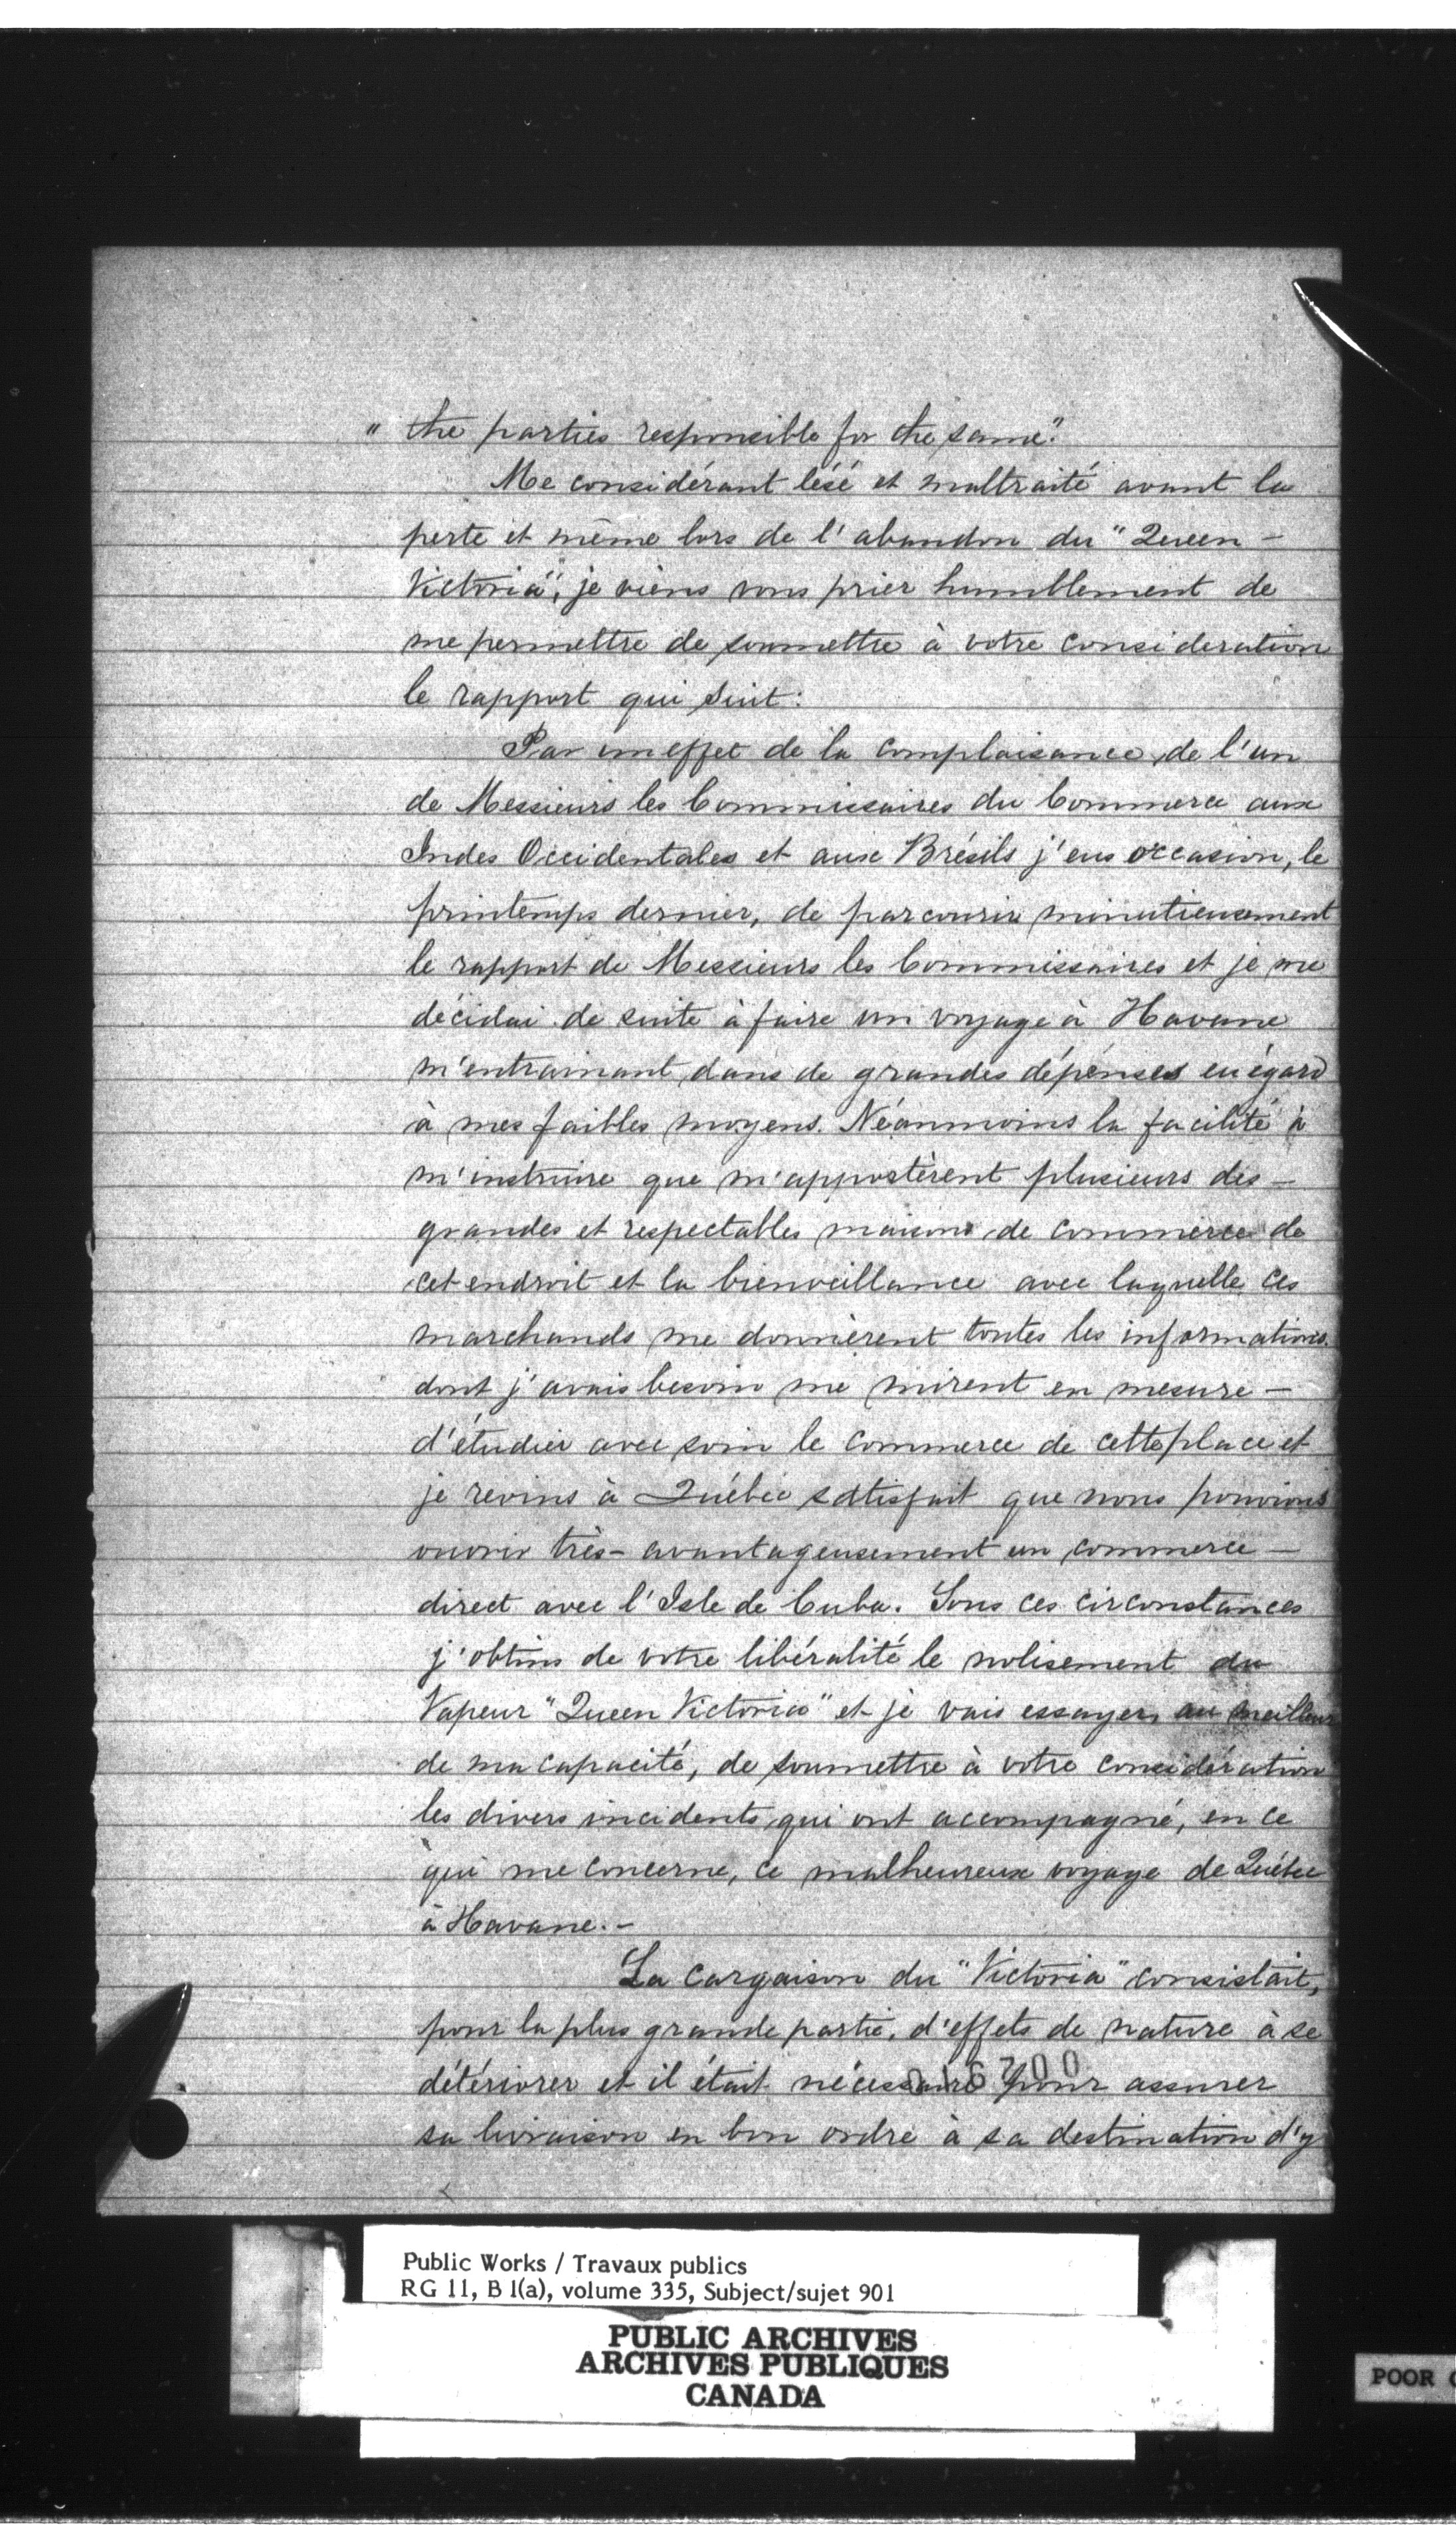 " the parties responsible for the same."
Me considérant lésé et maltraité avant la
perte et même lors de l'abandon du "Queen -
Victoria", je viens vous prier humblement de
me permettre de soumettre à votre consideration
le rapport qui suit:
Par un effet de la complaisance de l'un
de Messieurs les Commissaires du Commerce aux
Indes Occidentales et aux Brésils j'eus occasion, le
printemps dernier, de parcourir minutieusement
le rapport de Messieurs les Commissaires et je me
décidai de suite à faire un voyage à Havane
m'entrainant dans de grandes dépenses eu égard
à mes faibles moyens. Néanmoins la facilité à
m'instruire que m'apportèrent plusieurs des -
grandes et respectables maisons de commerce de
cet endroit et la bienveillance avec laquelle ces
marchands me donnèrent toutes les informations
dont j'avais besoin me mirent en mesure -
d'étudier avec soin le commerce de cette place et
je revins à Québec satisfait que nous pouvions
ouvrir très-avantageusement un commerce -
direct avec l'Isle de Cuba. Sous ces circonstances
j'obtins de votre libéralité le nolisement du
Vapeur "Queen Victoria" et je vais essayer, au meilleur
de ma capacité, de soumettre à votre considération
les divers incidents qui ont accompagné, en ce
qui me concerne, ce malheureux voyage de Québec
à Havane. -
La cargaison du "Victoria" consistait,
pour la plus grande partie, d'effets de nature à se
détériorer et il était nécessaire pour assurer
sa livraison en bon ordre à sa destination d'y
Public Works / Travaux publics
RG 11, B 1(a), volume 335, Subject/sujet 901
PUBLIC ARCHIVES
ARCHIVES PUBLIQUES
CANADA
POOR